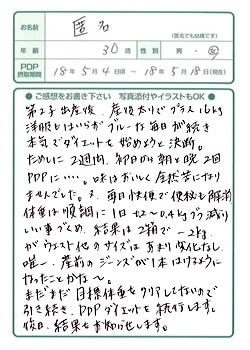 お名前 匿名
(匿名でも結構です)
年齢 30歳 性別 男・女
PDP摂取期間 18年5月4日頃～18年5月18日(現在)
●ご感想をお書き下さい 写真添付やイラストもOK●
第2子出産後、産後太りでプラス16kg
洋服もはいらずブルーな毎日が続き
本気でダイエットを始めようと決断。
ためしに2週間、初日から朝と晩2回
PDPに…。味はおいしく全然苦になり
ませんでした。又、毎日快便で便秘も解消
体重は順調に1日0.2～0.4kgずつ減り
いい事づくめ、結果は2週間で-2kg
がウエスト他のサイズはあまり変化なし。
唯一、産前のジーンズが1本はけるように
なったことかな～。
まだまだ目標体重をクリアしてないので
引き続き、PDPダイエットを続行します。
後日、結果をお知らせします。